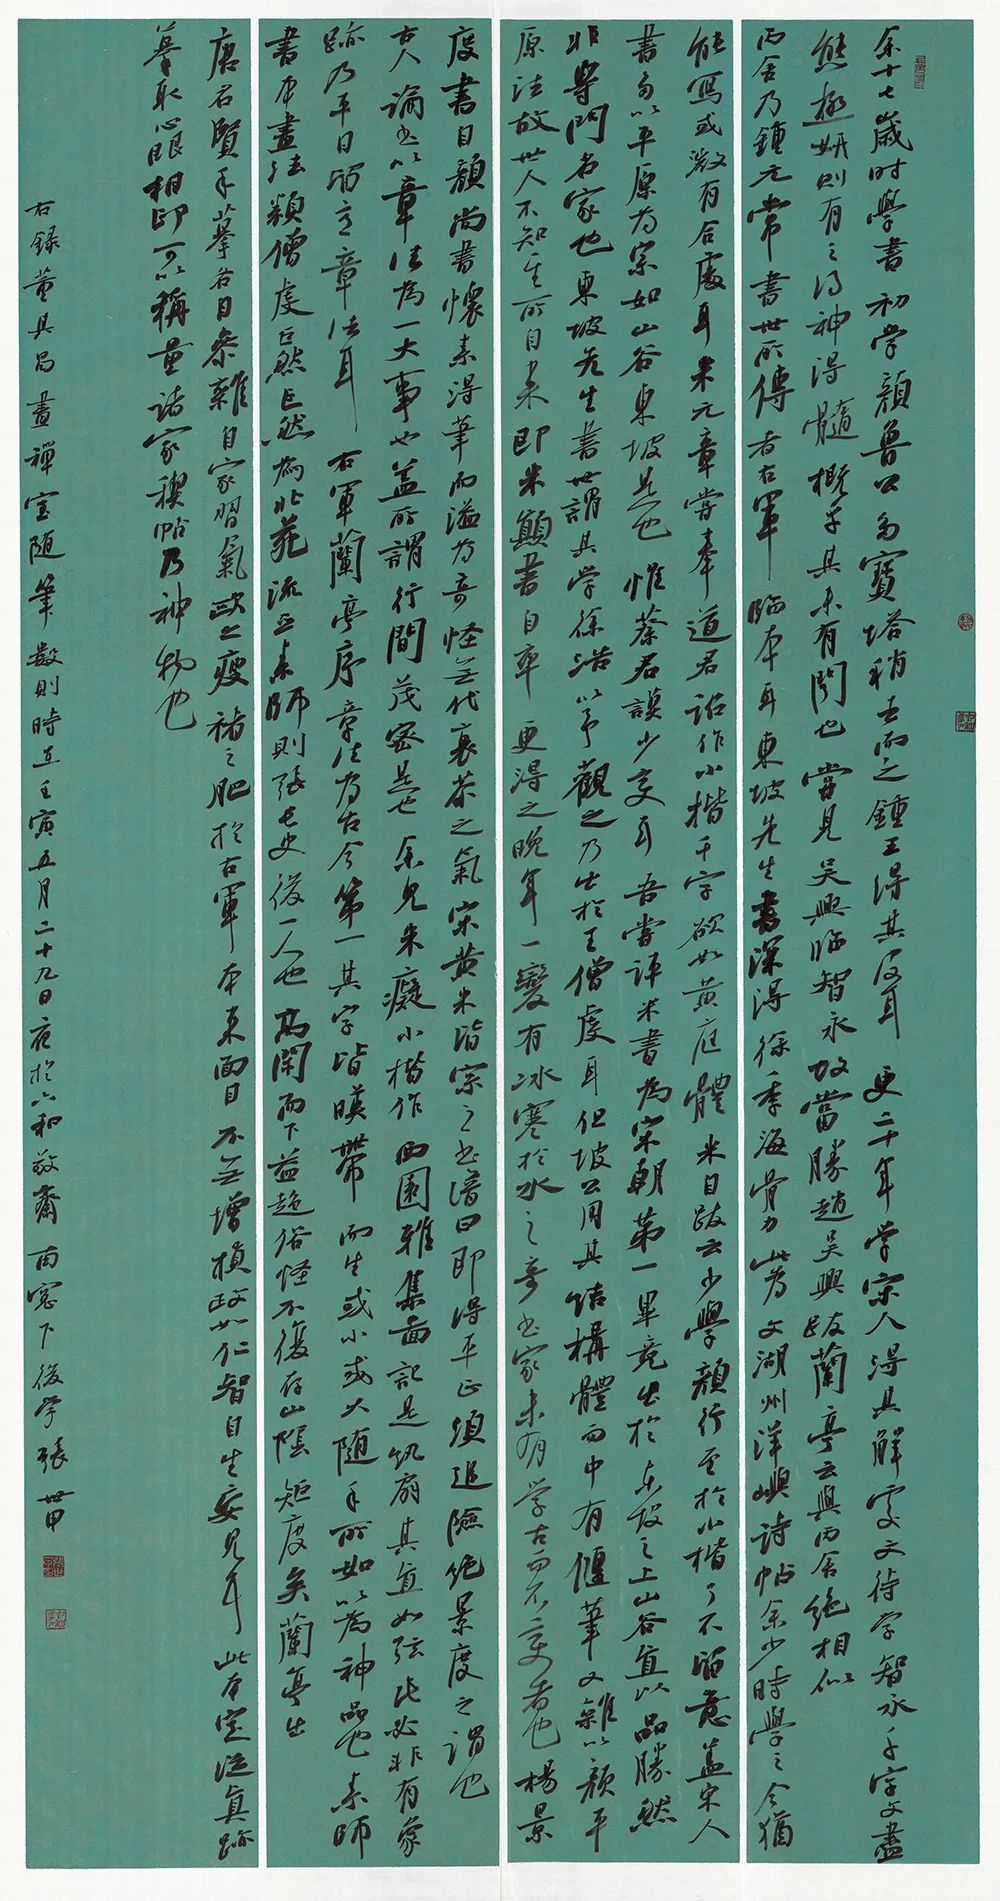 余十七歲时學書初学顏魯公多寶塔稍去而之鍾王得其皮耳更二十年学宋人得其解處文待学智永千字文盡
態極妍則有之得神得髓概乎其未有聞也嘗見吴興临智永故當勝趙吴興跋蘭亭云與丙舍絶相似
丙舍乃鍾元常書世所傳者右軍临本耳東坡先生書深得徐季海骨力此为文湖州洋嶼詩帖余少時學之今猶
能寫或微有合處耳米元章嘗奉道君诏作小楷千字欲如黄庭體米自跋云少學顏行至於小楷了不留意蓋宋人
書多以平原为宗如山谷東坡是也惟蔡君謨少變耳吾嘗评米書為宋朝第一畢竟出於东坡之上山谷直以品勝然
非專門名家也東坡先生書世謂其学徐浩以予觀之乃出於王僧虔耳但坡公用其结構體而中有偃筆又雜以顏平
原法故世人不知其所自来即米顛書自率更得之晚年一變有冰寒於水之奇书家未有学古而不变者也楊景
度書自顏尚書懷素得筆而溢为奇怪无代衰苶之氣宋黄米皆宗之书谱曰即得平正须追險绝景度之谓也
古人論书以章法为一大事也蓋所謂行間茂密是也余見米癡小楷作西園雅集面記是纨扇其直如弦此必非有象
跡乃平日留意章法耳右軍蘭亭序章法为古今第一其字皆暎帶而生或小或大随手所如以為神品也素师
書本畫法類僧虔巨然巨然為北苑流亞素师則張长史後一人也高閑而下益趋俗怪不復存山陰矩度矣蘭亭出
唐名賢手摹各自參雜自家習氣歐之瘦褚之肥於右軍本来面目不无增損政如仁智自生妄見耳此本定從真跡
摹取心眼相印可以稱量诸家禊帖乃神物也
右録董其昌畫禪室随筆數則時在壬寅五月二十九日夜於六和敬齋南窗下後学張世甲